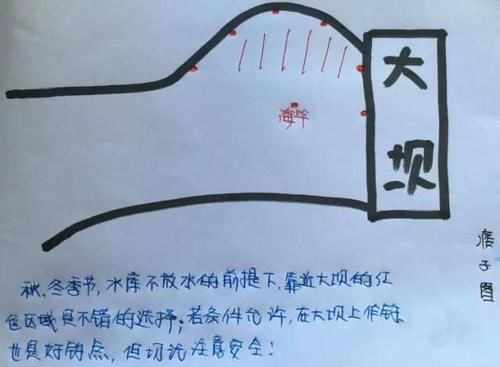 大
坝
海竿
瘪子图
秋、冬季节,水库不放水的前提下,靠近大坝的红
色区域是不错的选择;若条件允许,在大坝上作钓
也是好钓点,但切记注意安全!